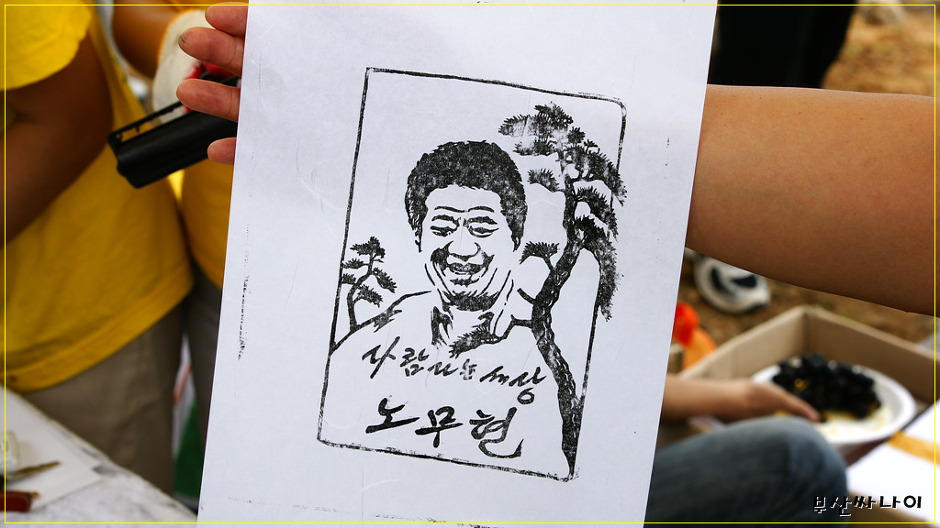 사람사는 세상
노무현
부산싸나이